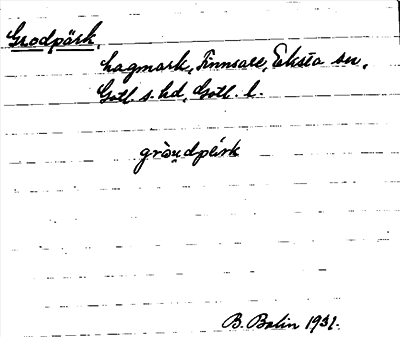 Grodpärk,
hagmark, Finnsare, Eksta sn,
Gotl. s. hd, Gotl. l.
gròu̯dpèrk
B. Bolin 1931.